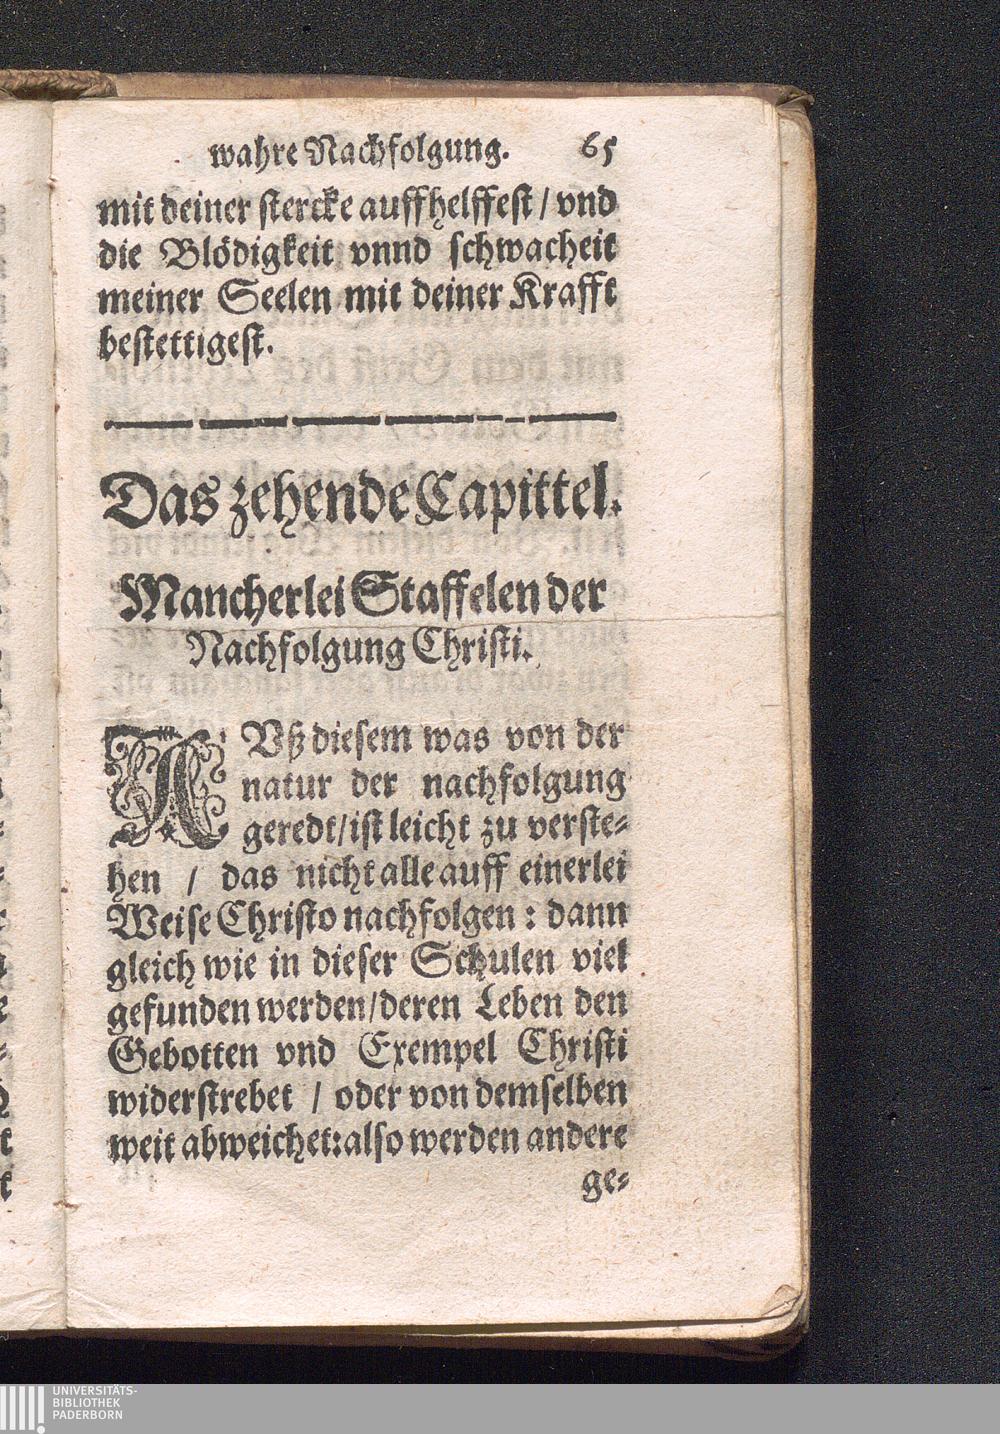 wahre Nachfolgung. 65
mit deiner stercke auffhelffest / vnd
die Blödigkeit vnnd schwacheit
meiner Seelen mit deiner Krafft
bestettigest.
Das zehende Capittel.
Mancherlei Staffelen der
Nachfolgung Christi.
AVß diesem was von der
natur der nachfolgung
geredt/ist leicht zu verste-
hen / das nicht alle auff einerlei
Weise Christo nachfolgen : dann
gleich wie in dieser Schulen viel
gefunden werden/deren Leben den
Gebotten vnd Exempel Christi
widerstrebet / oder von demselben
weit abweichet:also werden andere
ge-
UNIVERSITÄTS-
BIBLIOTHEK
PADERBORN